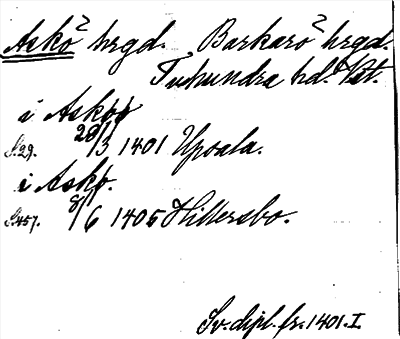 Askö hrgd. Barkarö hrgd.
Tuhundra hd. Vst.
i Askøø
S. 29. 28/3 1401 Upsala.
i Askø.
S. 457. 8/6 1405 Hillersbo.
Sv. dipl. fr. 1401. I.